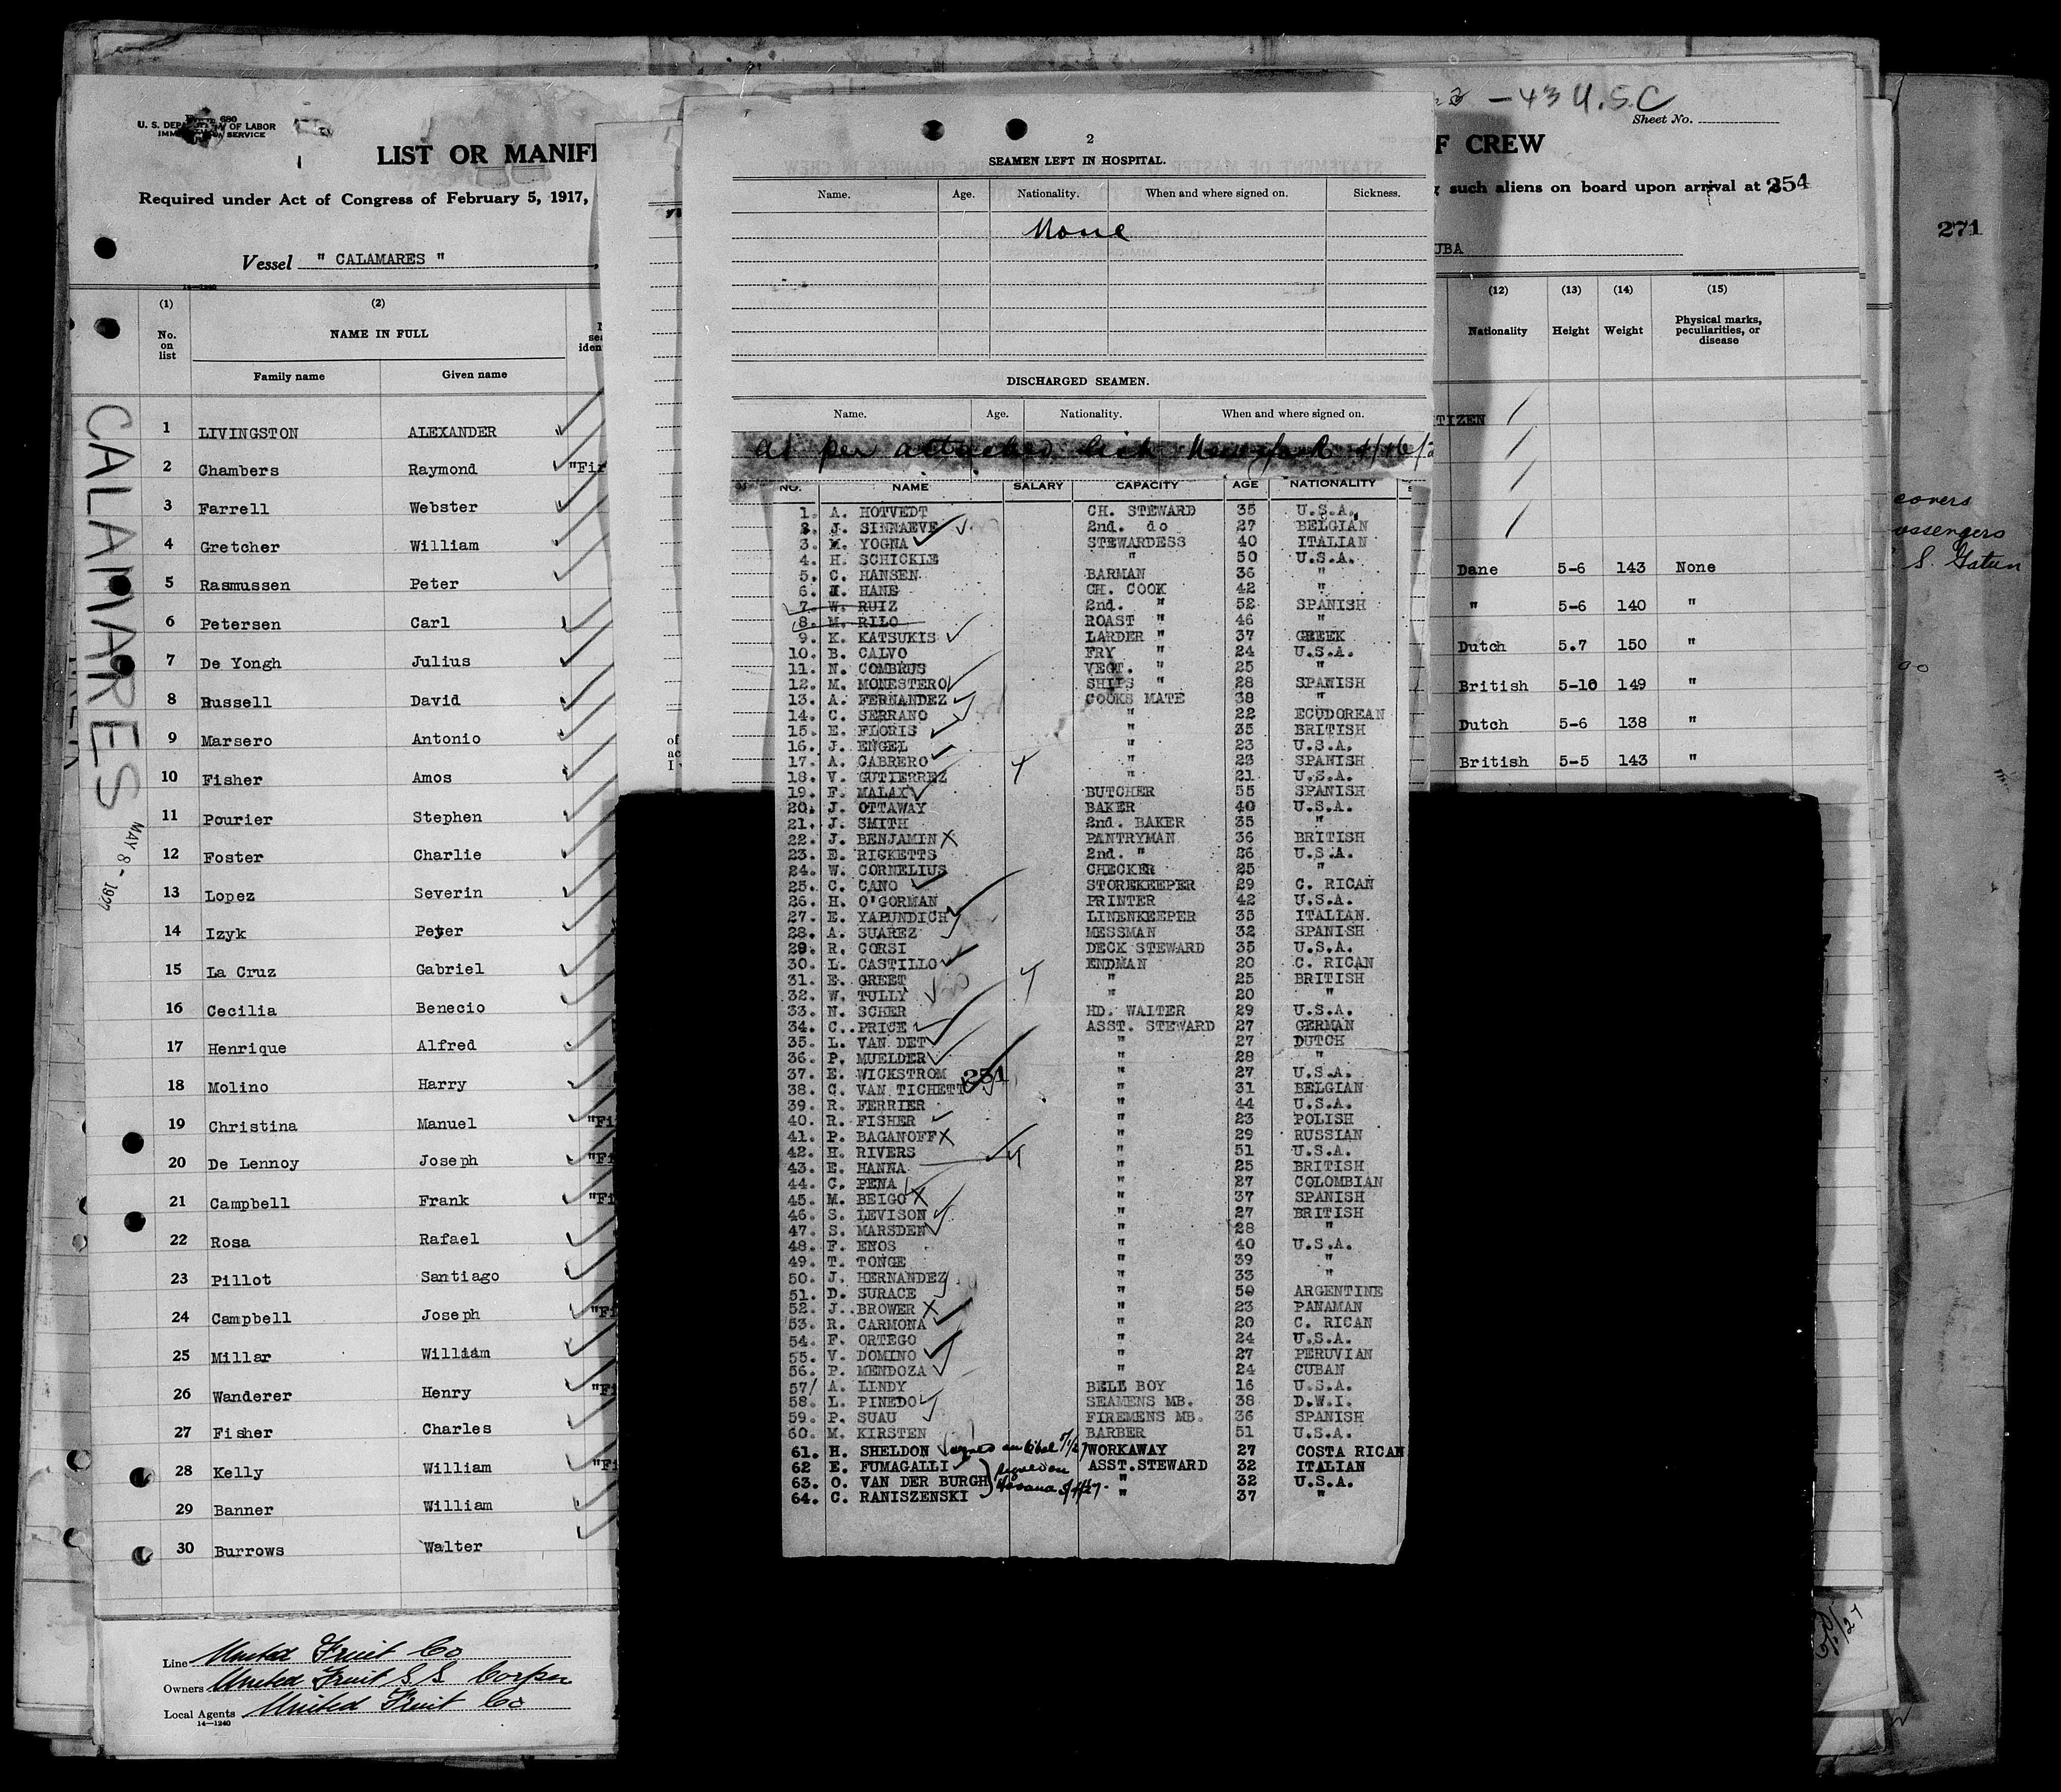 Form 680
U. S. DEPARTMENT OF LABOR
IMMIGRATION SERVICE
LIST OR MANIF
Required under Act of Congress of February 5, 1917,
Vessel " CALAMARES "
(1) (2)
No. on list
NAME IN FULL
Family name Given name
1 LIVINGSTON ALEXANDER
2 Chambers Raymond "Fir
3 Farrell Webster
4 Gretcher William
5 Rasmussen Peter
6 Petersen Carl
7 De Yongh Julius
8 Russell David
9 Marsero Antonio
10 Fisher Amos
11 Pourier Stephen
12 Foster Charlie
13 Lopez Severin
14 Izyk Peter
15 La Cruz Gabriel
16 Cecilia Benecio
17 Henrique Alfred
18 Molino Harry
19 Christina Manuel "Fi
20 De Lennoy Joseph "Fi
21 Campbell Frank "Fi
22 Rosa Rafael
23 Pillot Santiago
24 Campbell Joseph "Fi
25 Millar William
26 Wanderer Henry "Fi
27 Fisher Charles
28 Kelly William "Fi
29 Banner William
30 Burrows Walter
CALAMARES
MAY 8 - 1927
Line United Fruit Co
Owners United Fruit S.S. Corpn
Local Agents United Fruit Co
14—1240
2
SEAMEN LEFT IN HOSPITAL.
Name. Age. Nationality. When and where signed on. Sickness.
None
DISCHARGED SEAMEN.
Name. Age. Nationality. When and where signed on.
As per attached list New York 4/16/2
NO. NAME SALARY CAPACITY AGE NATIONALITY
1. A. HOTVEDT CH. STEWARD 35 U.S.A.
2. J. SINNAEVE 2nd. do 27 BELGIAN
3. M. YOGNA STEWARDESS 40 ITALIAN
4. H. SCHICKLE " 50 U.S.A.
5. C. HANSEN BARMAN 36 "
6. I. HANS CH. COOK 42 "
7. W. RUIZ 2nd. " 52 SPANISH
8. M. RILO ROAST " 46 "
9. K. KATSUKIS LARDER " 37 GREEK
10. B. CALVO FRY " 24 U.S.A.
11. N. COMBRUS VEGT. " 25 "
12. M. MONESTERO SHIPS " 28 SPANISH
13. A. FERNANDEZ COOKS MATE 38 "
14. C. SERRANO " 22 ECUDOREAN
15. E. FLORIS " 35 BRITISH
16. J. ENGEL " 23 U.S.A.
17. A. CABRERO " 23 SPANISH
18. V. GUTIERREZ " 21 U.S.A.
19. F. MALAX BUTCHER 55 SPANISH
20. J. OTTAWAY BAKER 40 U.S.A.
21. J. SMITH 2nd. BAKER 35 "
22. J. BENJAMIN PANTRYMAN 36 BRITISH
23. E. RICKETTS 2nd. " 26 U.S.A.
24. W. CORNELIUS CHECKER 25 "
25. C. CANO STOREKEEPER 29 C. RICAN
26. H. O'GORMAN PRINTER 42 U.S.A.
27. E. YAPUNDICH LINENKEEPER 35 ITALIAN.
28. A. SUAREZ MESSMAN 32 SPANISH
29. R. CORSI DECK STEWARD 35 U.S.A.
30. L. CASTILLO ENDMAN 20 C. RICAN
31. E. GREET " 25 BRITISH
32. W. TULLY " 20 "
33. N. SCHER HD. WAITER 29 U.S.A.
34. C. PRICE ASST. STEWARD 27 GERMAN
35. L. VAN DET " 27 DUTCH
36. P. MUELDER " 28 "
37. E. WICKSTROM 251 " 27 U.S.A.
38. C. VAN TICHETT " 31 BELGIAN
39. R. FERRIER " 44 U.S.A.
40. R. FISHER " 23 POLISH
41. P. BAGANOFF " 29 RUSSIAN
42. H. RIVERS " 51 U.S.A.
43. E. HANNA " 25 BRITISH
44. C. PENA " 27 COLOMBIAN
45. M. BEIGO " 37 SPANISH
46. S. LEVISON " 27 BRITISH
47. S. MARSDEN " 28 "
48. F. ENOS " 40 U.S.A.
49. T. TONGE " 39 "
50. J. HERNANDEZ " 33 "
51. D. SURACE " 50 ARGENTINE
52. J. BROWER " 23 PANAMAN
53. R. CARMONA " 20 C. RICAN
54. F. ORTEGO " 24 U.S.A.
55. V. DOMINO " 27 PERUVIAN
56. P. MENDOZA " 24 CUBAN
57/ A. LINDY BELL BOY 16 U.S.A.
58. L. PINEDO SEAMENS MB. 38 D.W.I.
59. P. SUAU FIREMENS MB. 36 SPANISH
60. M. KIRSTEN BARBER 51 U.S.A.
61. H. SHELDON WORKAWAY 27 COSTA RICAN
62 E. FUMAGALLI ASST.STEWARD 32 ITALIAN
63. O. VAN DER BURGH signed on " 32 U.S.A.
64. C. RANISZENSKI Havana 5/4/27. " 37 "
- 43 U.S.C
Sheet No.
F CREW
such aliens on board upon arrival at 254
UBA
(12) (13) (14) (15)
Nationality Height Weight Physical marks, peculiarities, or disease
TIZEN
Dane 5-6 143 None
" 5-6 140 "
Dutch 5.7 150 "
British 5-10 149 "
Dutch 5-6 138 "
British 5-5 143 "
271
covers
assengers
S. Gatun